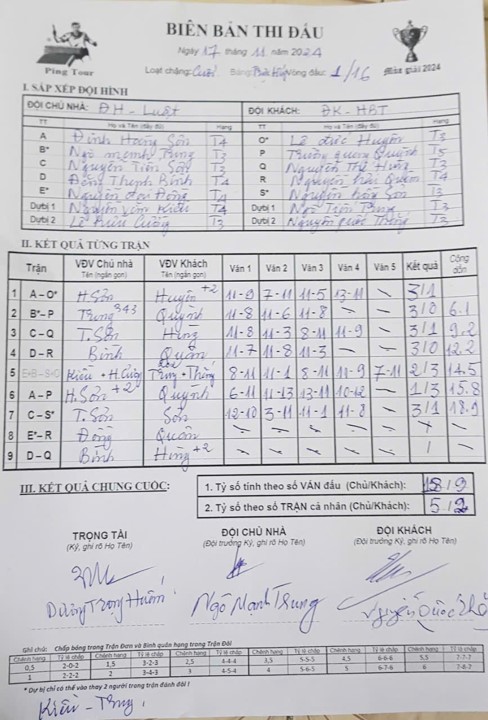 BIÊN BẢN THI ĐẤU
Ping Tour
Ngày 17 tháng 11 năm 2024
Loạt chặng: Cuối Bảng: Vòng đấu: 1/16 Mùa giải 2024
I. SẮP XẾP ĐỘI HÌNH
ĐỘI CHỦ NHÀ: ĐH - Luật ĐỘI KHÁCH: ĐK - HBT
TT Họ và Tên (đầy đủ) Hạng TT Họ và Tên (đầy đủ) Hạng
A Đinh Hoàng Sơn T4 O* Lê Đức Huyên T3
B* Ngô Mạnh Trung T3 P Trương Quang Quỳnh T5
C Nguyễn Tiến Sơn T3 Q Nguyễn Thế Hùng T3
D Đặng Thịnh Bình T4 R Nguyễn Quân T4
E* Nguyễn Đông T4 S* Nguyễn Sơn T3
Dự bị 1 Nguyễn Văn Kiều T4 Dự bị 1 Ngô Tiến Trung T3
Dự bị 2 Lê Hữu Cường T3 Dự bị 2 Nguyễn Quốc Thắng T3
II. KẾT QUẢ TỪNG TRẬN
Trận VĐV Chủ nhà Tên (ngắn gọn) VĐV Khách Tên (ngắn gọn) Ván 1 Ván 2 Ván 3 Ván 4 Ván 5 Kết quả Cộng dồn
1 A – O* H.Sơn Huyên +2 11-9 7-11 11-5 13-11 - 3/1
2 B* – P Trung 343 Quỳnh 11-8 11-6 11-8 - - 3/0 6.1
3 C – Q T.Sơn Hùng 11-8 11-3 8-11 11-9 - 3/1 9.2
4 D – R Bình Quân 11-7 11-8 11-3 - - 3/0 12.2
5 E+B –S+O Kiều + H.Cường Trung + Thắng 8-11 11-1 8-11 11-9 7-11 2/3 14.5
6 A – P H.Sơn +2 Quỳnh 6-11 11-13 13-11 10-12 - 1/3 15.8
7 C – S* T.Sơn Sơn 12-10 3-11 11-1 11-8 - 3/1 18.9
8 E* – R Đông Quân - - - - -
9 D – Q Bình Hùng +2 - - - - - /
III. KẾT QUẢ CHUNG CUỘC:
1. Tỷ số tính theo số VÁN đấu (Chủ/Khách): 18/9
2. Tỷ số theo số TRẬN cá nhân (Chủ/Khách): 5/2
TRỌNG TÀI ĐỘI CHỦ NHÀ ĐỘI KHÁCH
(Ký, ghi rõ Họ Tên) (Đội trưởng Ký, ghi rõ Họ Tên) (Đội trưởng Ký, ghi rõ Họ Tên)
Dương Trọng Huấn Ngô Mạnh Trung Nguyễn Quốc
Ghi chú: Chấp bóng trong Trận Đơn và Bình quân hạng trong Trận Đôi
Chênh hạng Tỷ lệ chấp Chênh hạng Tỷ lệ chấp Chênh hạng Tỷ lệ chấp Chênh hạng Tỷ lệ chấp Chênh hạng Tỷ lệ chấp Chênh hạng Tỷ lệ chấp
0,5 2-0-2 1,5 3-2-3 2,5 4-4-4 3,5 5-5-5 4,5 6-6-6 5,5 7-7-7
1 2-2-2 2 3-4-3 3 4-5-4 4 5-6-5 5 6-7-6 6 7-8-7
* Dự bị chỉ có thể vào thay 2 người trong trận đánh đôi !
Kiều - Trung